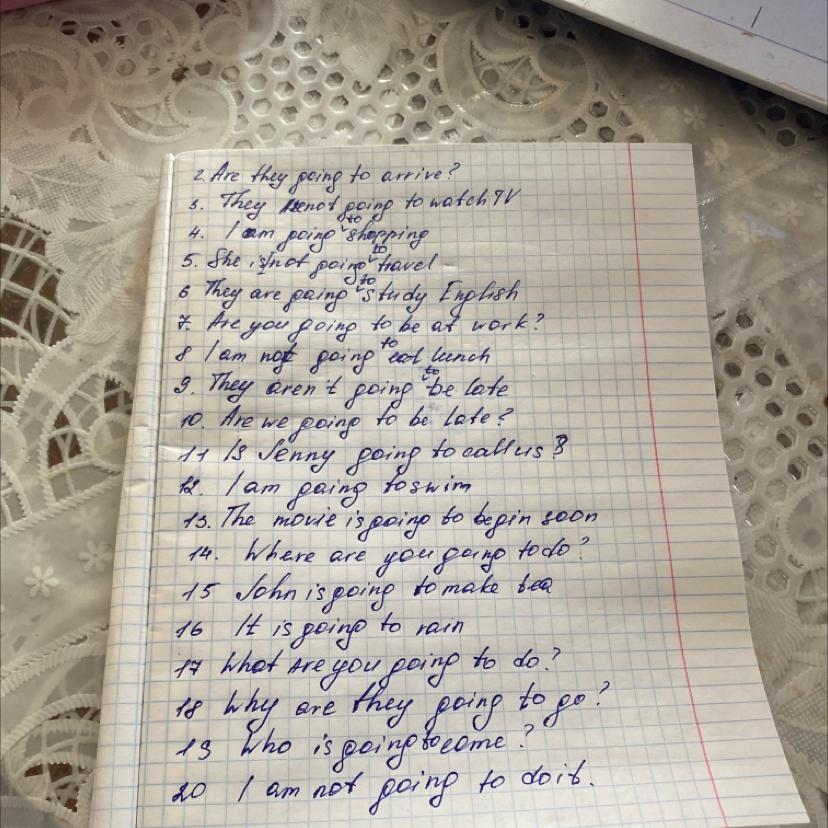 2. Are they going to arrive?
3. They not going to watch TV
4. I am going to shopping
5. She is not going to travel
6 They are going to study English
7. Are you going to be at work?
8 I am not going to eat lunch
9. They aren't going to be late
10. Are we going to be late?
11 Is Jenny going to call us?
12. I am going to swim
13. The movie is going to begin soon
14. Where are you going to do?
15 John is going to make tea
16 It is going to rain
17 What are you going to do?
18 Why are they going to go?
19 Who is going to come?
20 I am not going to do it.